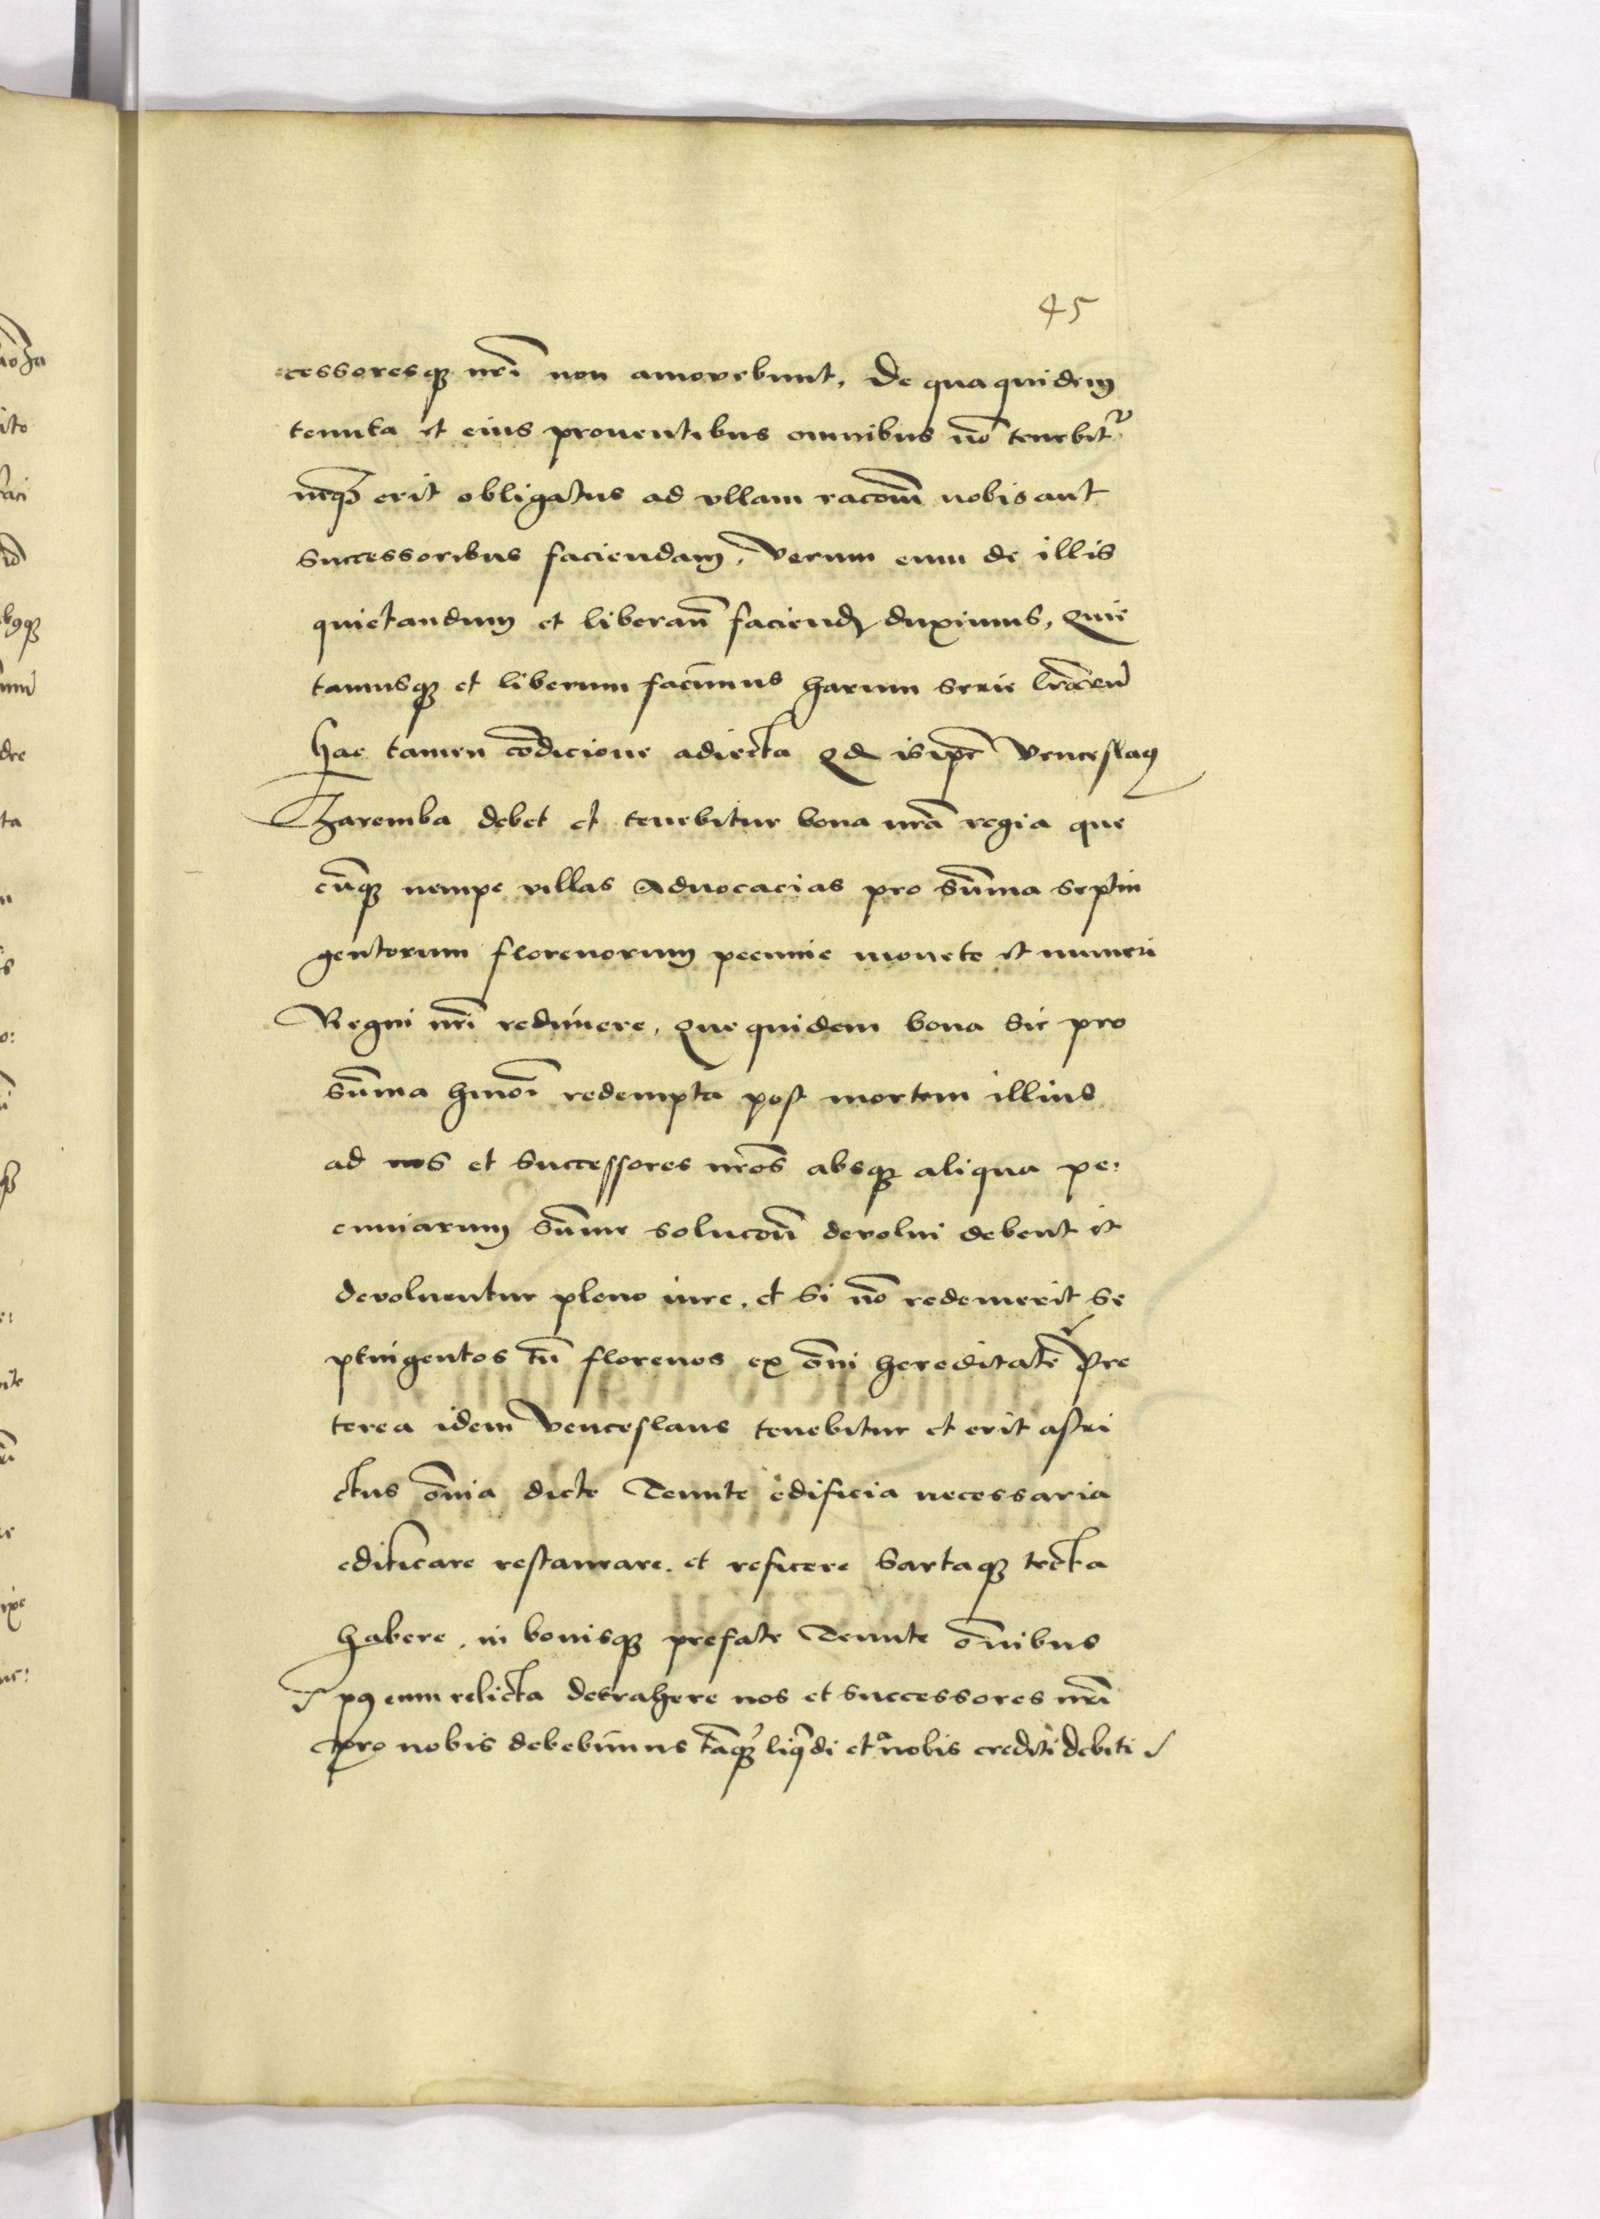 45
cessoresq nri non amovebunt. De qua quidem
tenuta et eius proventibus omnibus no tenebitr
neq erit obligatus ad ullam racom nobis aut
successoribus faciendam, Verum eum de illis
quietandum et liberan faciend duximus, Quie
tamusq et liberum facimus harum serie lraru
hac tamen condicione adiecta Qd is ipe Venceslaus
Zaremba debet et tenebitur bona nra regia que
cunq nempe villas Advocacias pro summa septin
gentorum florenorum pecunie monete et numeri
Regni nri redimere, Que quidem bona sic pro
summa hmoi redempta post mortem illius
ad nos et successores nros absq aliqua pe:
cuniarum summe solucom devolvi debent et
devolventur pleno iure. et si no redemerit se
ptingentos tn florenos ex omi hereditate Pre
terea idem Venceslaus tenebitur et erit astri
ctus omia dicte Tenute edificia necessaria
edificare restaurare. et reficere sartaq tecta
habere. in bonisq prefate Tenute omnibus
per eum relicta detrahere nos et successores nri
pro nobis debebimus tanq liqdi et a nobis crediti debiti